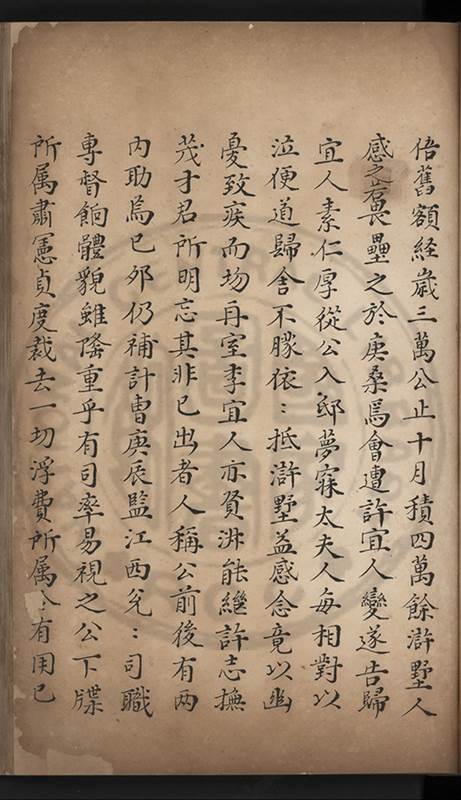 倍舊額経歳三萬公止十月積四萬餘滸墅人
感之若畏壘之於庚桑焉會遭許宜人變遂告歸
宜人素仁厚從公入邸夢寐太夫人每相對以
泣便道歸舍不朦依：抵滸墅益感念竟以幽
憂致疾而坳再室李宜人亦賢淑能繼許志撫
茂才君所明忘其非已出者人稱公前後有两
内助焉已夘仍補計曹庚辰監江西兌：司職
專督餉體貌雖隆重乎有司率易視之公下牒
所属肅憲貞度裁去一切浮費所属 有用已